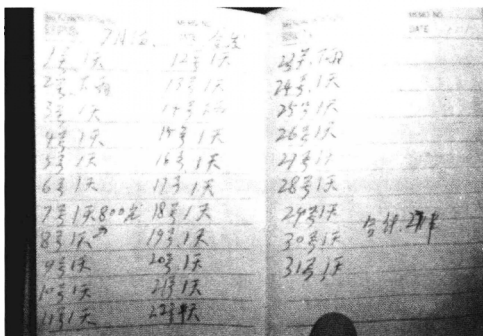 1号.1天
2号.下雨
3号1天
4号1天
5号.1天
6号1天
7号1天800元
8号1天
9号1天
10号1天
11号1天
12号1天
13号.1天
14号
15号1天
16号.1天
17号1天
18号1天
19号.1天
20号.1天
21号1天
22号
MEMO NO.
DATE
23号.下雨
24号.1天
25号1天
26号1天
27号1
28号1天
29号1天
30号1天
31号1天